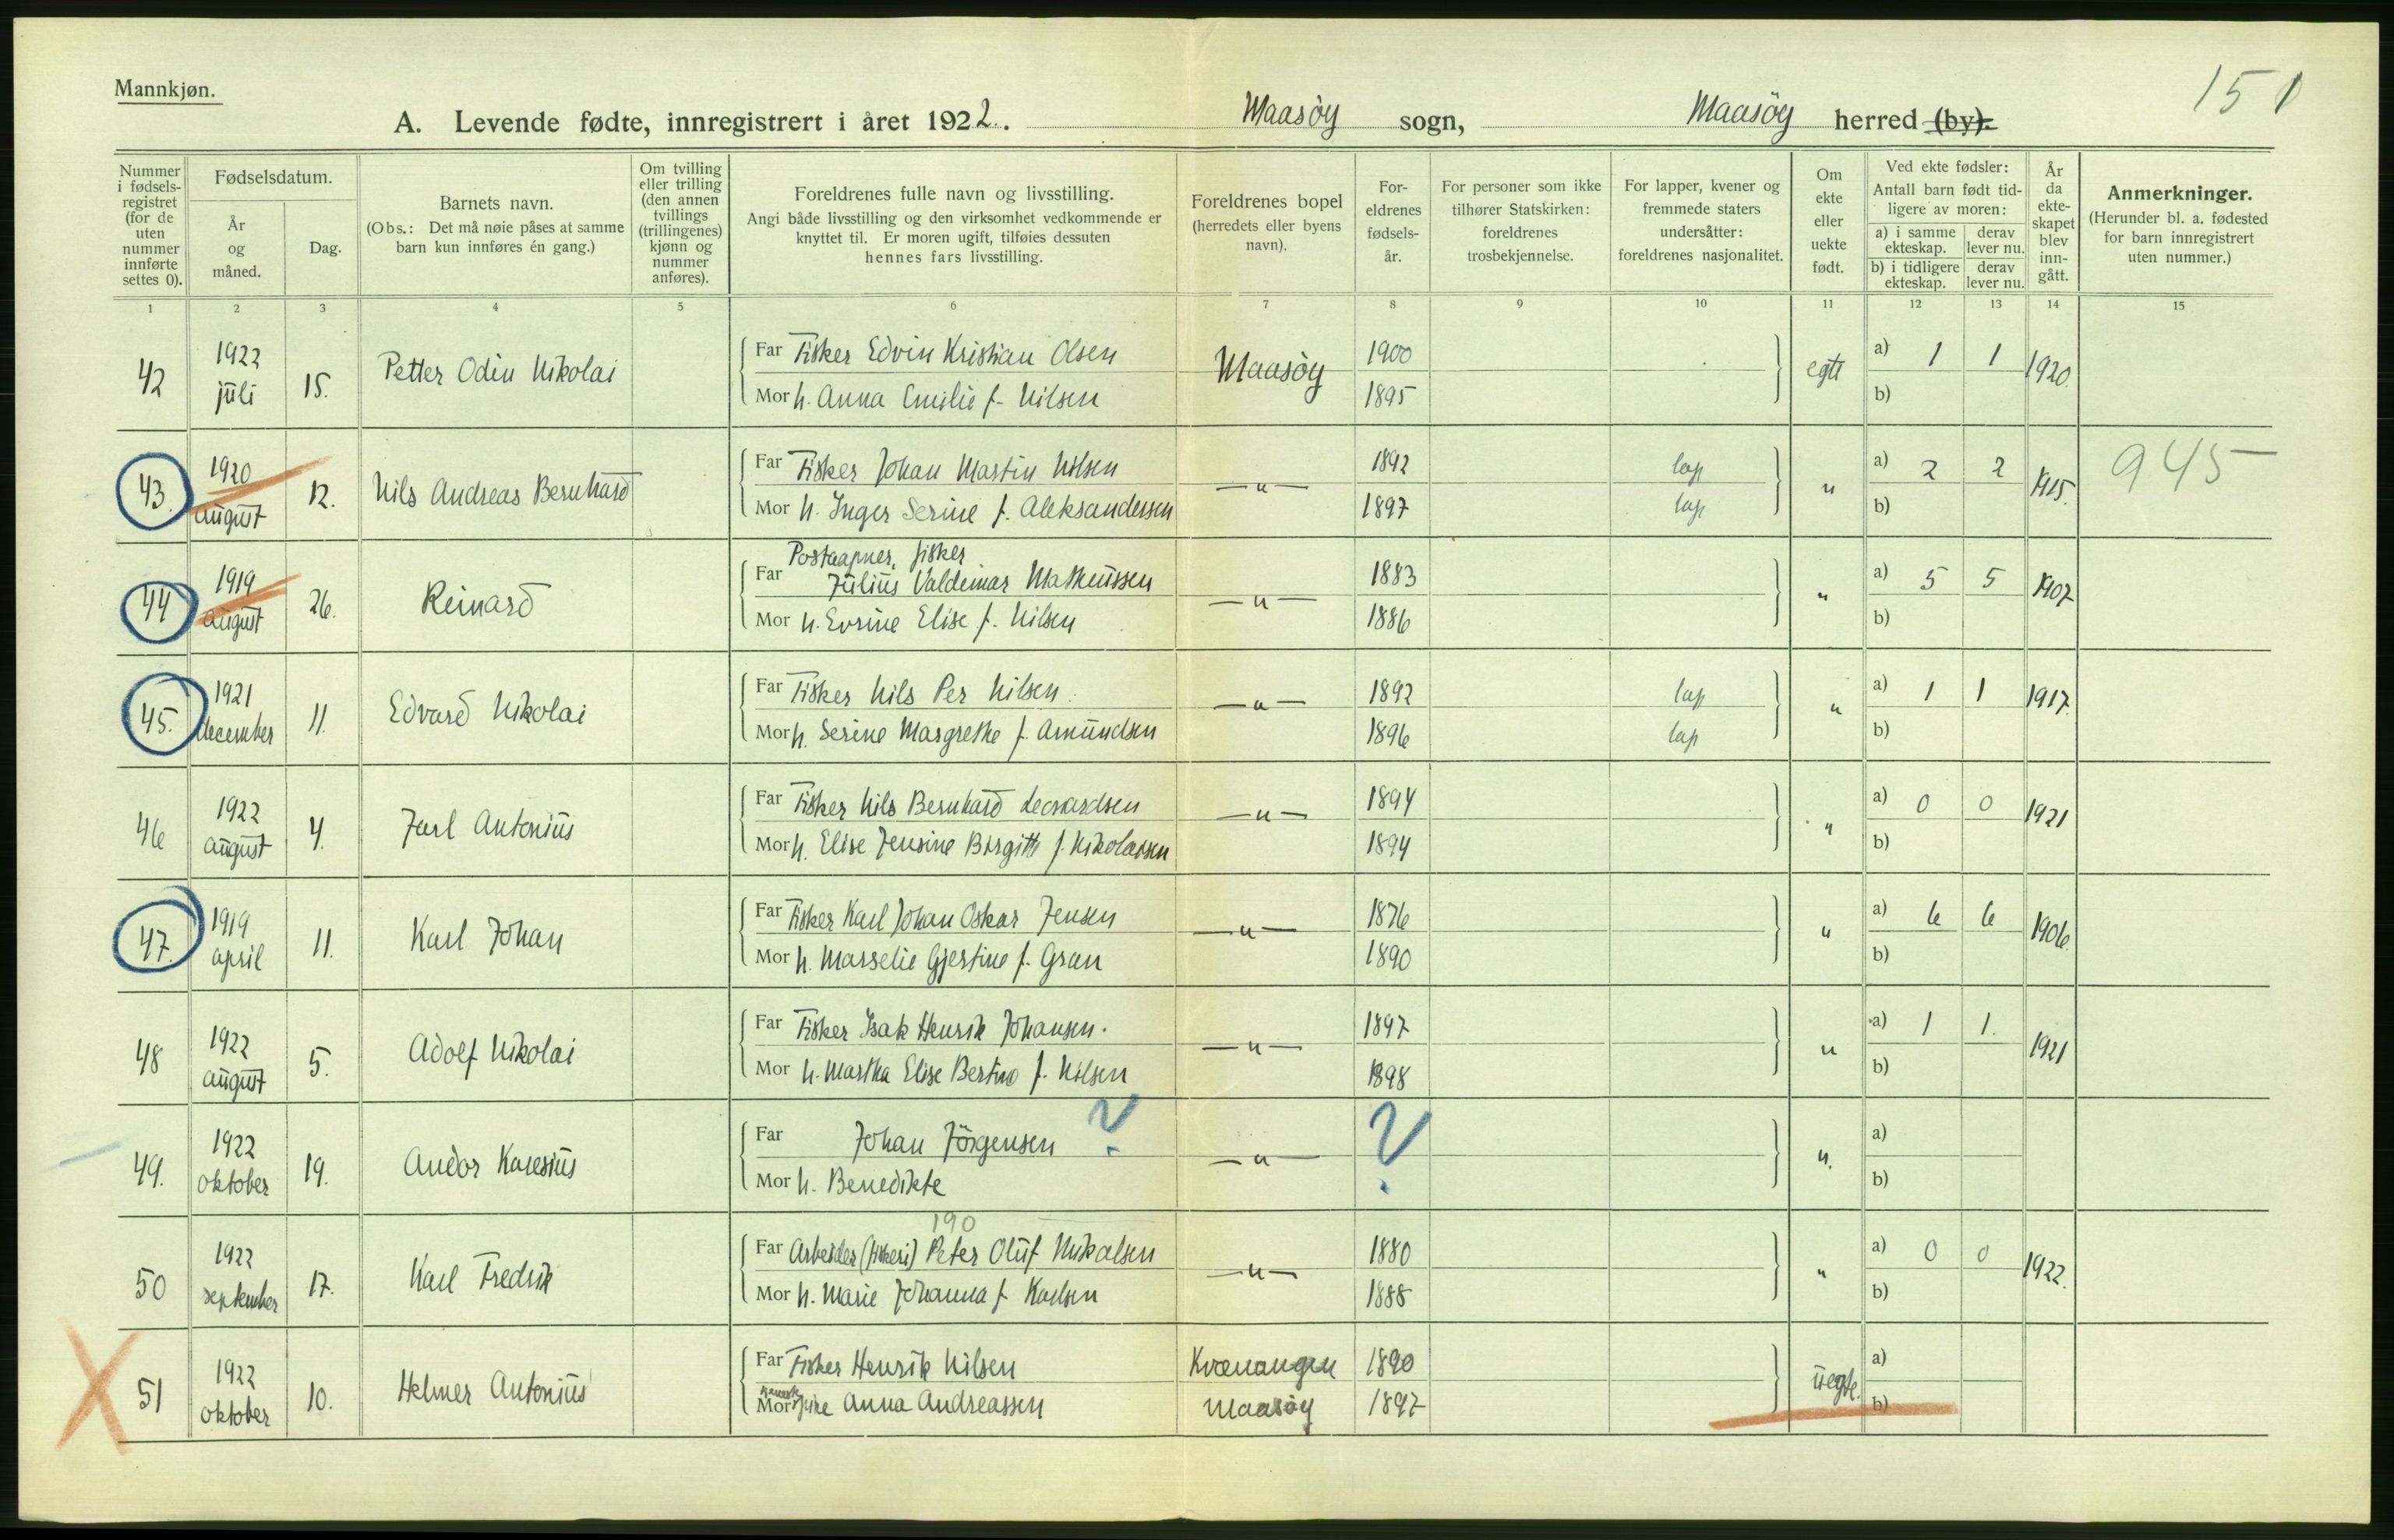 Mannkjøn.
151
A. Levende fødte, innregistrert i året 1922. Maasöy sogn, Maasöy herred (by).
Nummer i fødsels-registret (for de uten nummer innførte settes 0).
Fødselsdatum.
År og måned.
Dag.
Barnets navn.
(Obs.: Det må nøie påses at samme barn kun innføres én gang.)
Om tvilling eller trilling (den annen tvillings (trillingenes) kjønn og nummer anføres).
Foreldrenes fulle navn og livsstilling.
Angi både livsstilling og den virksomhet vedkommende er knyttet til. Er moren ugift, tilføies dessuten hennes fars livsstilling.
Foreldrenes bopel (herredets eller byens navn).
For-eldrenes fødsels-år.
For personer som ikke tilhører Statskirken: foreldrenes trosbekjennelse.
For lapper, kvener og fremmede staters undersåtter: foreldrenes nasjonalitet.
Om ekte eller uekte født.
Ved ekte fødsler:
Antall barn født tid-ligere av moren:
a) i samme ekteskap. derav lever nu.
b) i tidligere ekteskap. derav lever nu.
År da ekte-skapet blev inn-gått.
Anmerkninger.
(Herunder bl. a. fødested for barn innregistrert uten nummer.)
1 2 3 4 5 6 7 8 9 10 11 12 13 14 15
42 1922 juli 15. Petter Odin Nikolai
Far Fisker Edvin Kristian Olsen Maasöy 1900 egte a) 1 1 1920.
Mor h. Anna Emilie f. Nilsen 1895 b)
43. 1920 august 12. Nils Andreas Bernhard
Far Fisker Johan Martin Nilsen —"— 1892 lap " a) 2 2 1915. 945
Mor h. Inger Serine f. Aleksandersen 1897 lap b)
44 1919 august 26. Reinard
Postaapner, fisker
Far Julius Valdemar Matheussen —"— 1883 " a) 5 5 1907
Mor h. Evrine Elise f. Nilsen 1886 b)
45. 1921 december 11. Edvard Nikolai
Far Fisker Nils Per Nilsen —"— 1892 lap " a) 1 1 1917.
Mor h. Serine Margrethe f. Amundsen 1896 lap b)
46 1922 august 4. Jarl Antonius
Far Fisker Nils Bernhard Leonardsen —"— 1894 " a) 0 0 1921
Mor h. Elise Jensine Birgitte f. Nikolaisen 1894 b)
47. 1919 april 11. Karl Johan
Far Fisker Karl Johan Oskar Jensen —"— 1876 " a) 6 6 1906.
Mor h. Marselie Gjertine f. Gran 1890 b)
48 1922 august 5. Adolf Nikolai
Far Fisker Isak Henrik Johansen. —"— 1897 " a) 1 1. 1921
Mor h. Martha Elise f. Nilsen 1898 b)
49. 1922 oktober 19. Andor
Far Johan Jörgensen ? —"— ? ". a)
Mor h. Benedikte b)
190
50 1922 september 17. Karl Fredrik
Far Arbeider (fiskeri) Peter Oluf Nikolsen —"— 1880 " a) 0 0 1922.
Mor h. Marie Johanna f. Karlsen 1888 b)
51 1922 oktober 10. Helmer Antonius
Far Fisker Henrik Nilsen Kvænangen 1890 uegte. a)
Mor Anna Andreassen Maasöy 1897 b)